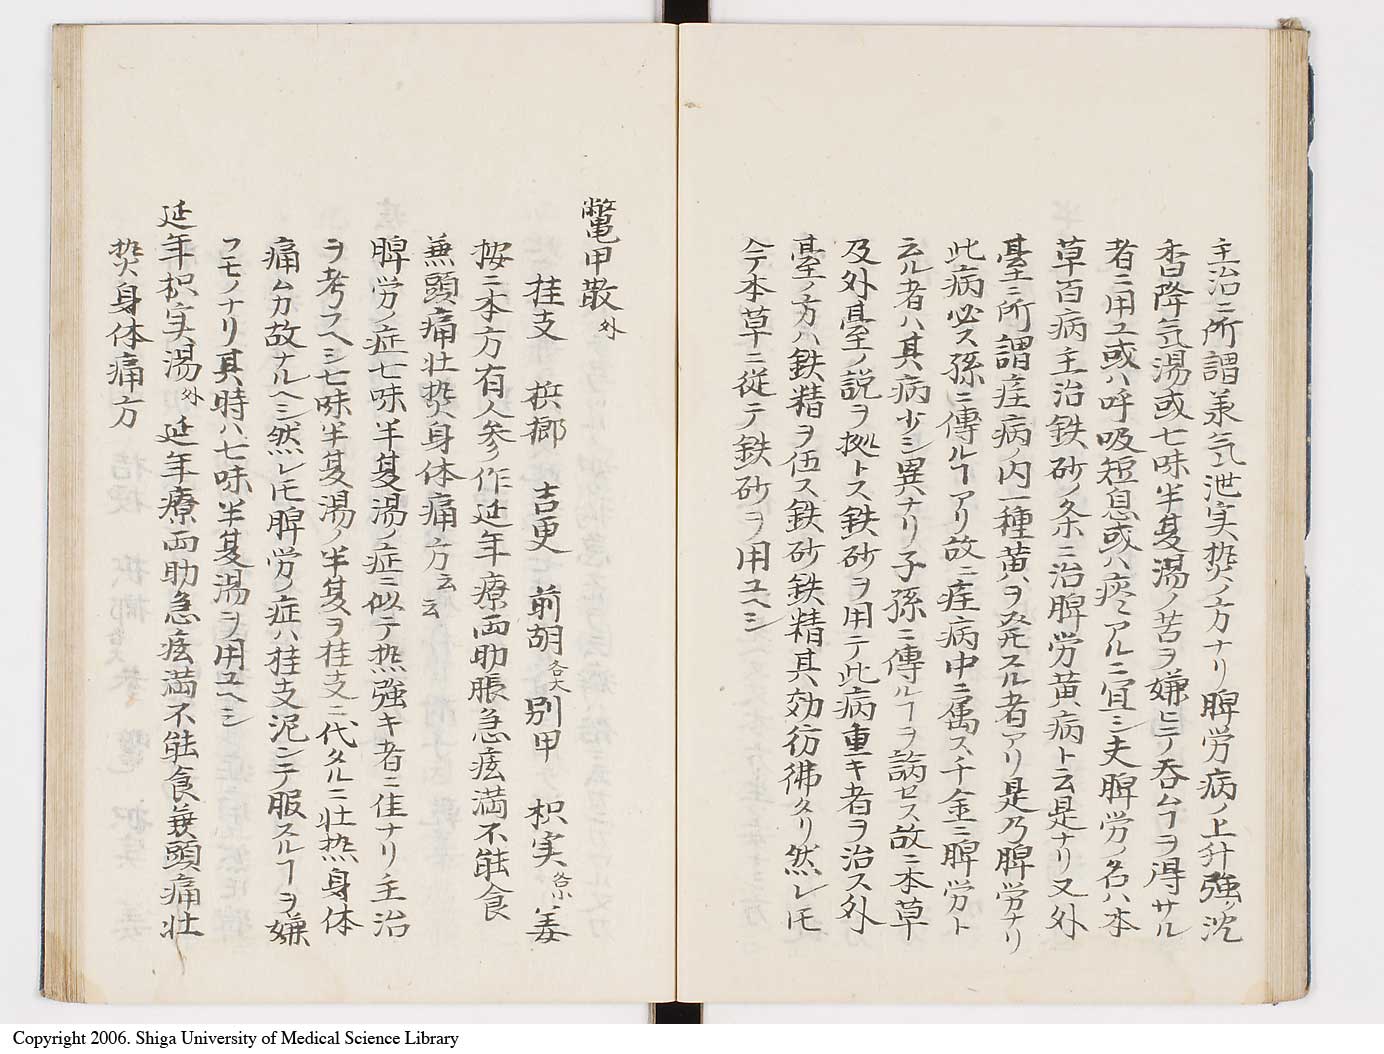 主治ニ所謂羕气泄実𤍠ノ方ナリ脾労病ノ上升強ノ沈
香降气湯或七味半夏湯ノ苦ヲ嫌ヒテ吞ムヿヲ得サル
者ニ用ユ或ハ呼吸短息或ハ痰アルニ宜シ夫脾労ノ名ハ本
草百病主治鉄砂ノ条ニ治脾労黄病ト云是ナリ又外
臺ニ所謂疰病ノ内一種黄ハヲ発スル者アリ是乃脾労ナリ
此病必ス孫ニ傳ルヿアリ故ニ疰病中ニ属ス千金ニ脾労ト
云ル者ハ其病少シ異ハナリ子孫ニ傳ルヿヲ論セス故ニ本草
及外臺ノ説ヲ拠トス鉄砂ヲ用テ此病重キ者ヲ治ス外
臺ノ方ハ鉄精ヲ伍ス鉄砂鉄精其効彷彿タリ然レ𪜈
今テ本草ニ従テ鉄砂ヲ用ユヘシ
鼈甲散外
桂支 梹榔 吉更 前胡各大別甲 枳実各小姜
按ニ本方有人参ノ作延年療両助脹急痃満不能食
兼頭痛壮𤍠身体痛方云云
脾労ノ症七味半夏湯ノ症ニ似テ热強キ者ニ佳ナリ主治
ヲ考フヘシ七味半夏湯ノ半夏ヲ桂支ニ代タルニ壮热身体
痛ムカ故ナルヘシ然レ𪜈脾労ノ症ハ桂支泥シテ服スルヿヲ嫌
フモノナリ其時ハ七味半夏湯ヲ用ユヘシ
延年枳実湯外延年療両助急痃満不能食兼頭痛壮
𤍠身体痛方
Copyright 2006. Shiga University of Medical Science Library